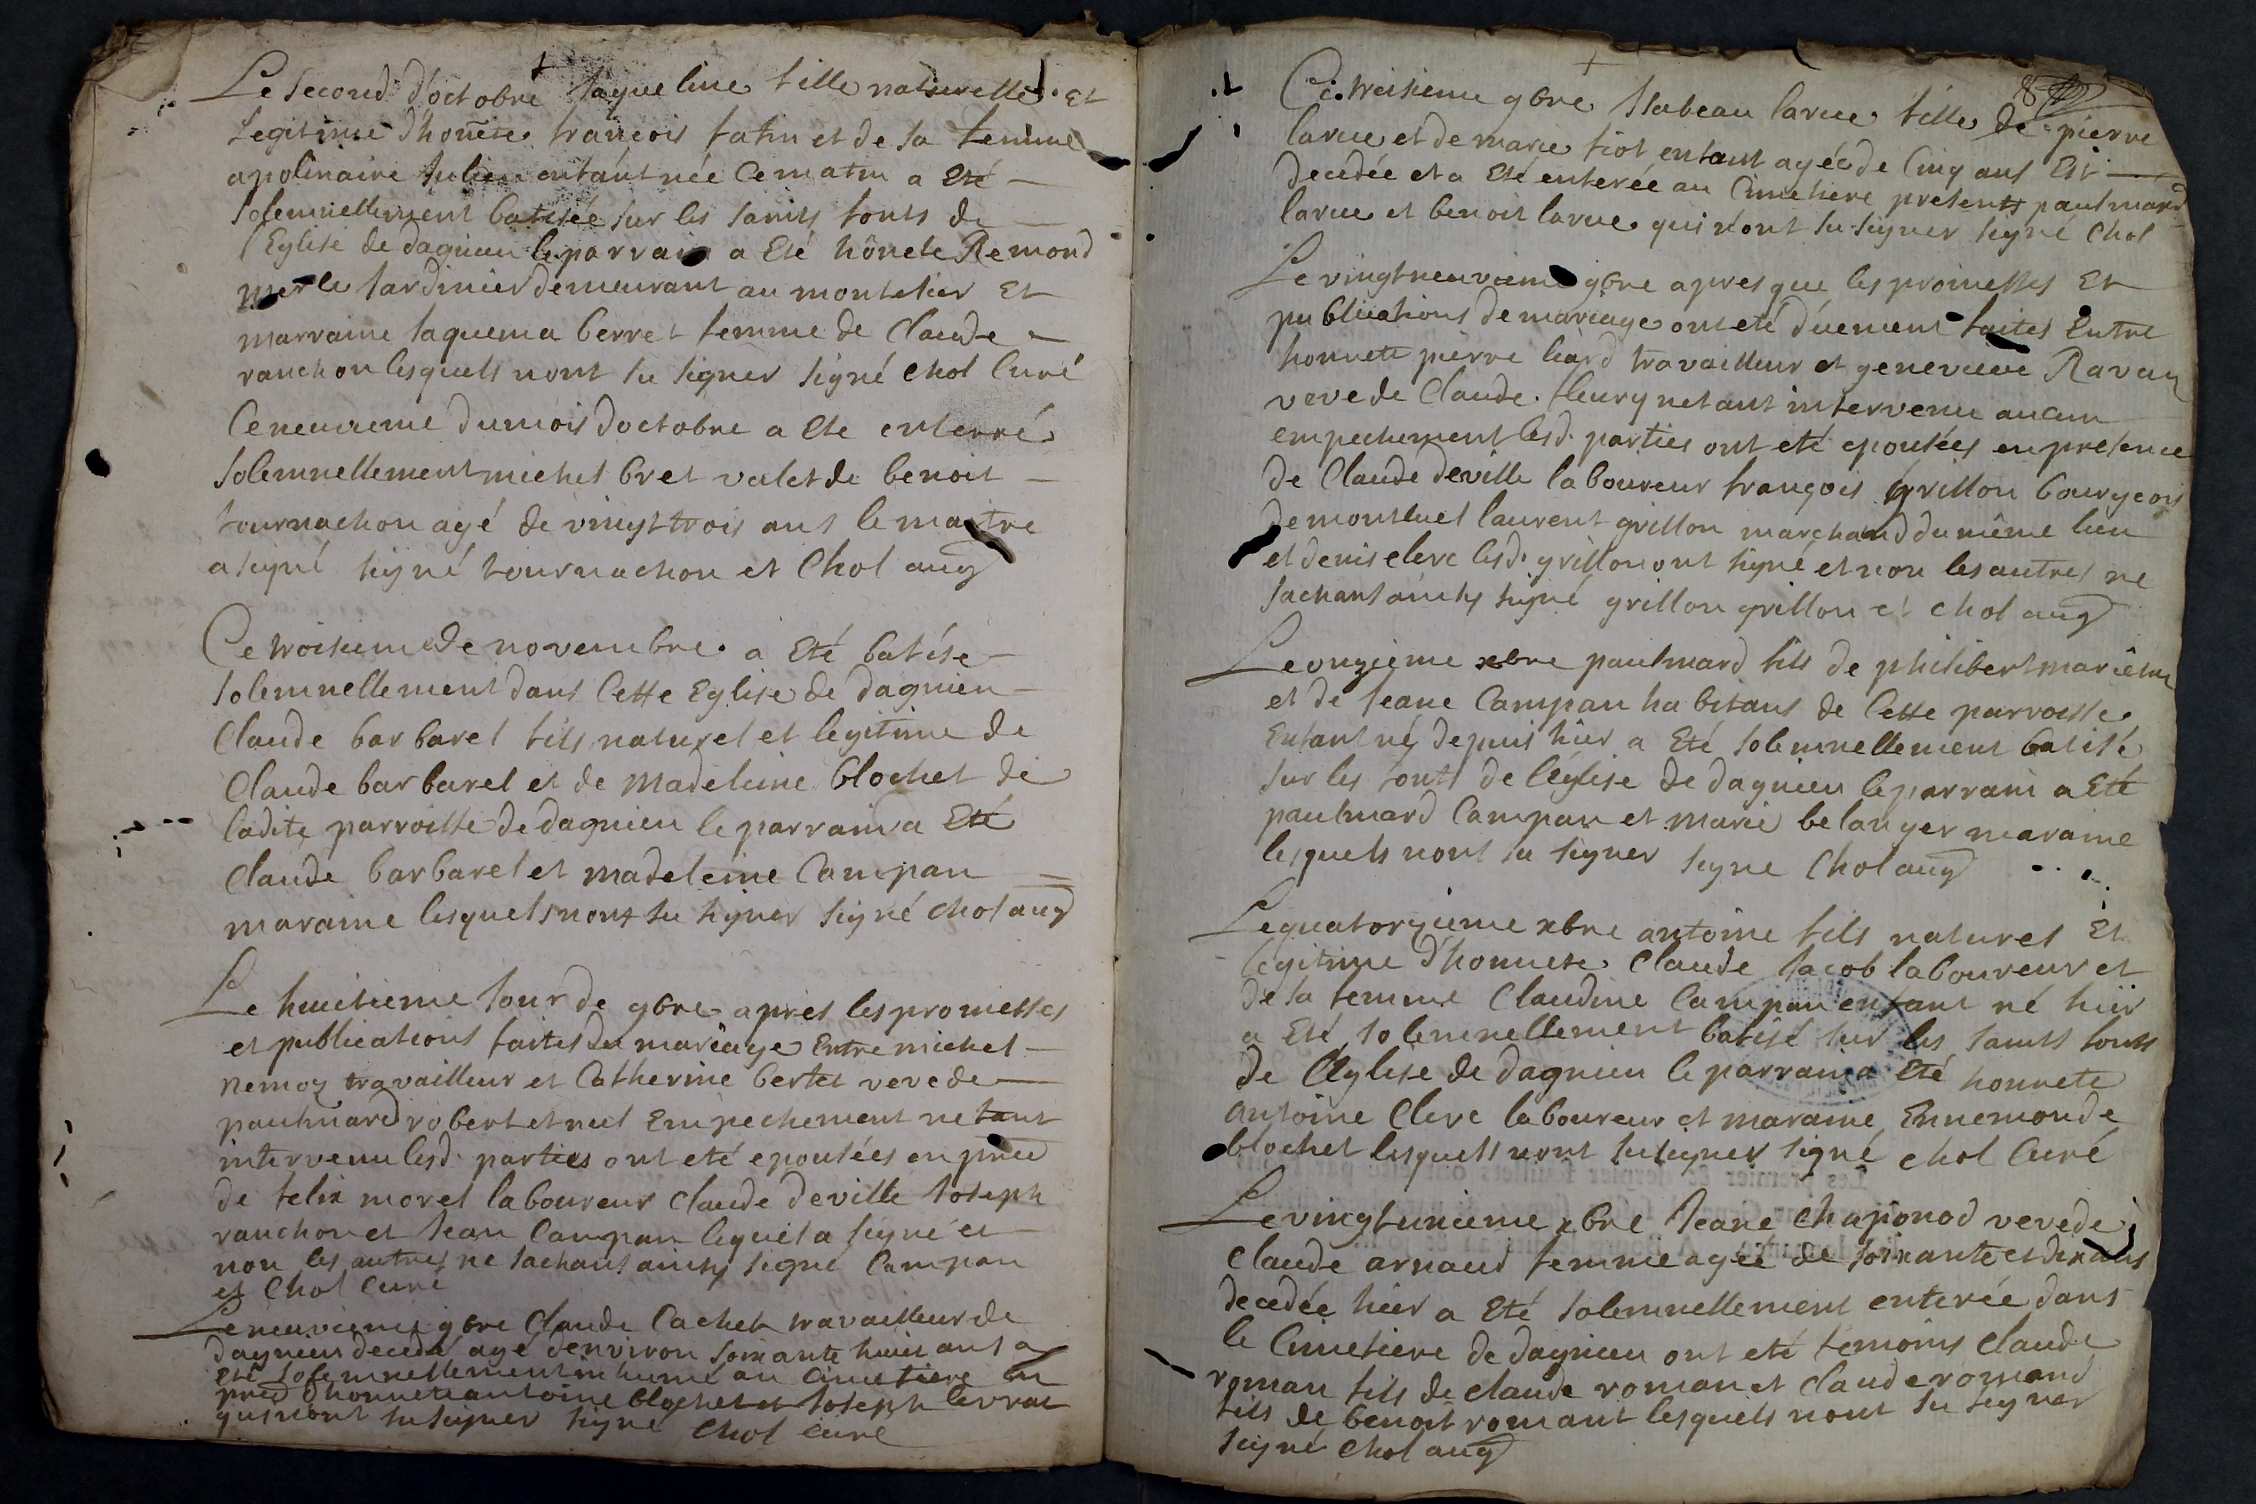 Le Second d'octobre Jaqueline fille naturelle et
Legitime d'honete francois fatin et de sa femme
apolinaire Julien enfant née Ce matin a Eté
solemnellement batisée sur les saints fonts de
l'Eglise de dagnieu le parrain a Eté hônete Remond
merle Jardinier demeurant au montelier Et
marraine Jaquema berret femme de Claude
ranchon lesquels nont su signer signé Chol Curé
Ce neuvieme du mois d'octobre a Ete enterré
solemnellement michel bret valet de benoit
tournachon agé de vingt trois ans le maitre
a signé signé tournachon et Chol
Ce troisieme de novembre a Eté batisé
solemnellement dans Cette Eglise de dagnieu
Claude barbaret fils naturel et legitime de
Claude barbaret et de Madeleine blochet de
ladite parroisse de dagnieu le parrain a Eté
Claude barbaret et Madeleine Campan
maraine lesquels nont su signer signé chol
Le huitieme Jour de 9bre apres les promesses
et publications faites du mariage Entre michel
nemoz travailleur et Catherine bertet veve de
paulmard robert et nul Empechement netant
intervenu lesd. parties ont eté epousées en pnce
de felix morel laboureur Claude deville Joseph
ranchon et Jean Campan lequel a signé et
non les autres ne sachant ainsy signé Campan
et Chol Curé
Le neuvieme 9bre Claude Cachet travailleur de
dagnieu decedé agé d'environ soixante huit ans a
eté solemnellement inhumé au Cimetiere en
pnce d'honnete antoine blochet et Joseph levrat
qui nont su signer signé Chol Curé
8
Ce troisieme 9bre Isabeau larue fille de pierre
larue et de marie fiot enfant agée de Cinq ans Est
decedée et a Eté enterée au Cimetiere presents paulmard
larue et benoit larue qui n'ont su signer signé Chol
Le vingtneuvieme 9bre apres que les promesses Et
publications de mariage ont eté düement faites Entre
honnete pierre liard travailleur et genevieve Ravan
veve de Claude fleury netant intervenu aucun
empechement lesd. parties ont eté epousées en presence
de Claude deville laboureur françois grillon bourgeois
de montluel laurent grillon marchand du même lieu
et denis clerc lesd. grillon ont signé et non les autres ne
sachant ainsy signé grillon grillon et chol
Le onzieme xbre paulmard fils de philibert
et de Jeane Campan habitans de Cette parroisse
Enfant né depuis hier a Eté solemnellement batisé
sur les fonts de l'église de dagnieu le parrain a Eté
paulmard Campan et Marie belanger maraine
lesquels nont su signer signe Chol
Le quatorzieme xbre antoine fils naturel Et
legitime d'honnete Claude Jacob laboureur et
de sa femme Claudine Campan enfant né hiér
a Eté solemnellement batisé sur les saints fonts
de l'Eglise de dagnieu le parrain a Eté honnete
antoine Clerc laboureur et maraine Ennemonde
blochet lesquels nont su signer signé Chol Curé
Le vingtunieme xbre Jeane Chaponod veve de
Claude arnaud femme agée de soixante et dix ans
decedée hier a Eté solemnellement enterée dans
le Cimetiere de dagnieu ont eté temoins Claude
roman fils de Claude roman et Claude romand
fils de benoit romant lesquels nont su signer
signé Chol